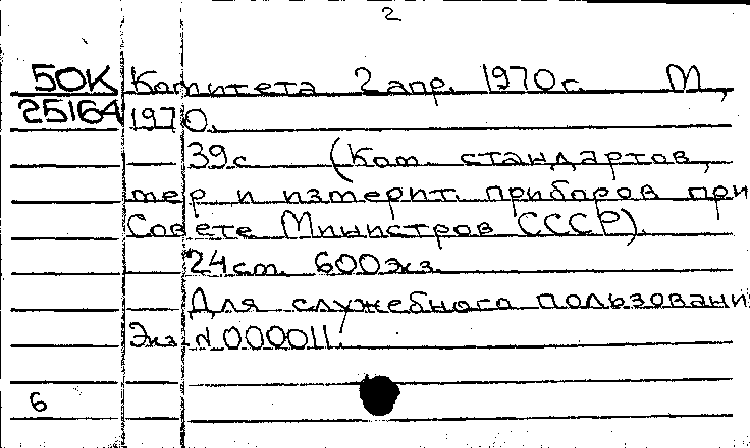 2
50К Комитета 2 апр. 1970 г. М.,
25164 1970.
39 с. (Ком. стандартов,
мер и измерит. приборов при
Совете Министров СССР).
24 см. 600 экз.
Для служебного пользовани
Экз. № 000011.
6